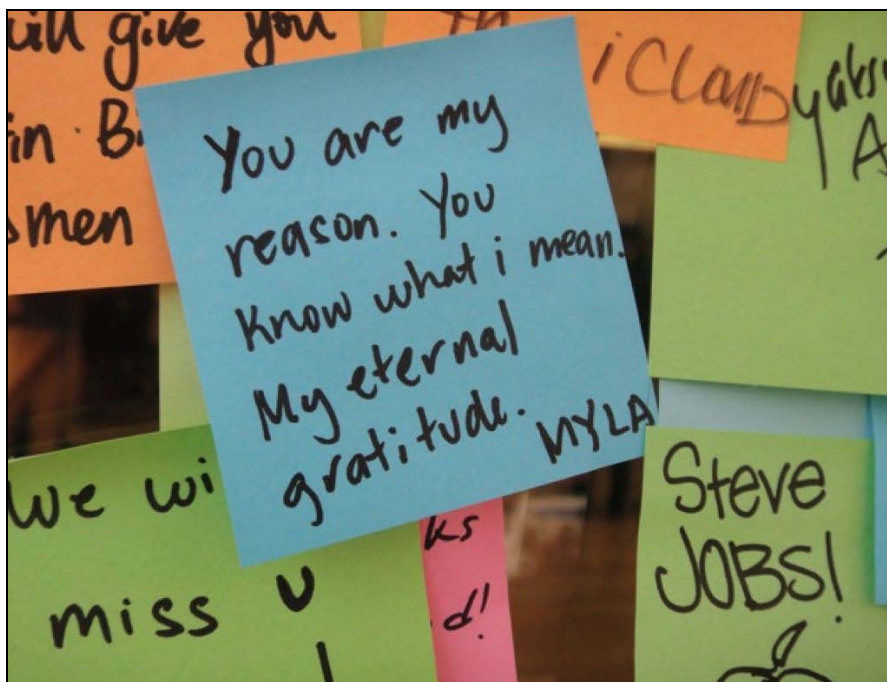 will give you
in
smen
in
iCland
You are my
reason. You
Know what i mean.
My eternal
gratitude.
MYLA
We wi
miss u
ks
d!
Steve
JOBS!